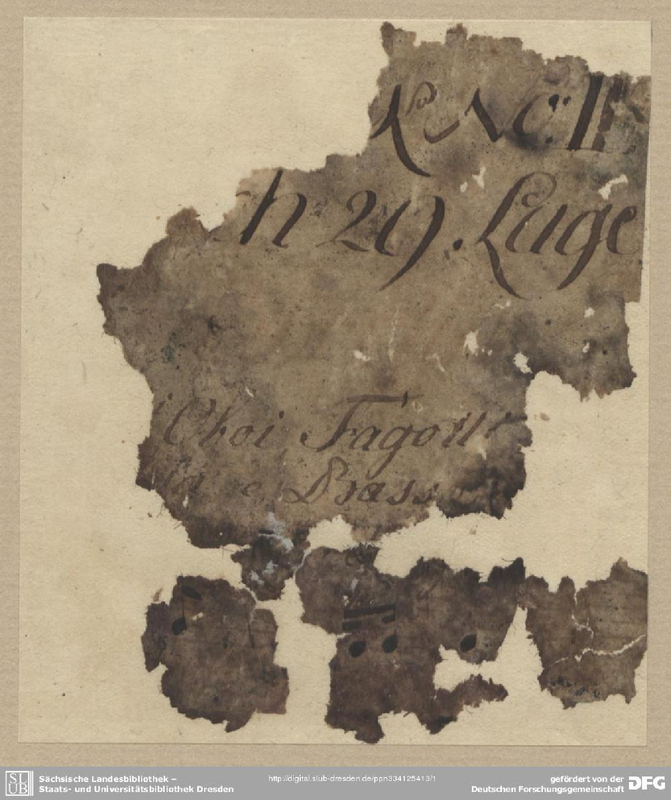 No: II
h 29. Lage
Oboi, Fagott
e Bass
Sächsische Landesbibliothek –
Staats- und Universitätsbibliothek Dresden
http://digital.slub-dresden.de/ppn334125413/1
gefördert von der
Deutschen Forschungsgemeinschaft
SLUB
DFG